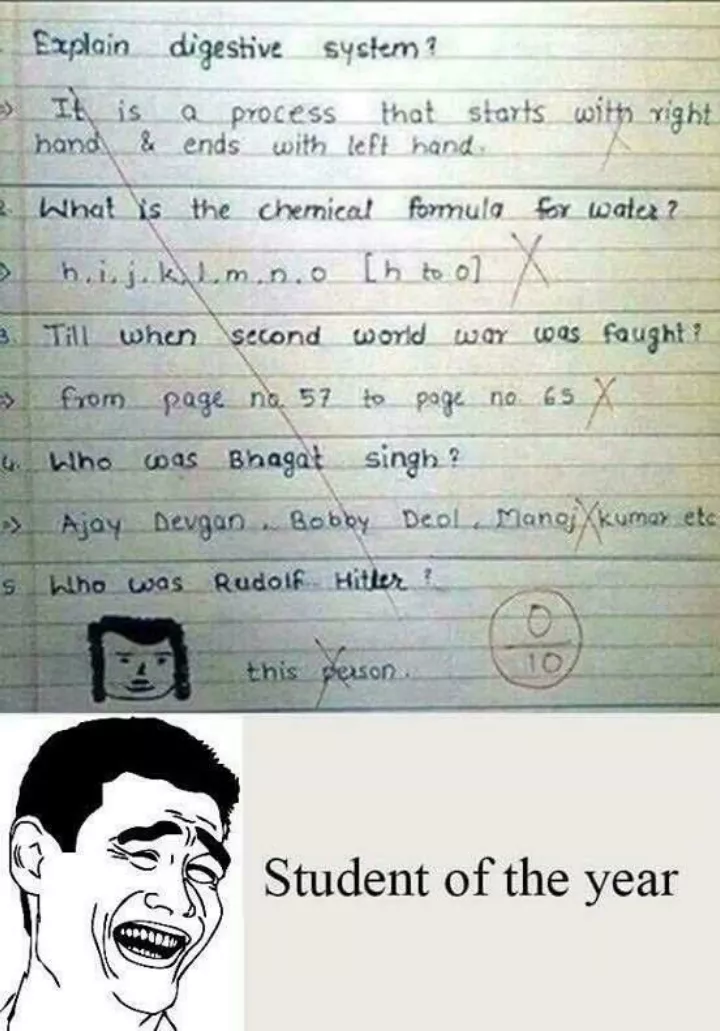 Explain digestive system?
=> It is a process that starts with right
hand & ends with left hand.
2. What is the chemical formula for water?
=> h,i,j,k,l,m,n,o [h to o]
3. Till when second world war was faught?
=> from page no. 57 to page no. 65
4. Who was Bhagat singh?
=> Ajay Devgan, Bobby Deol, Manoj kumar etc
5 Who was Rudolf Hitler?
this person.
0
10
Student of the year